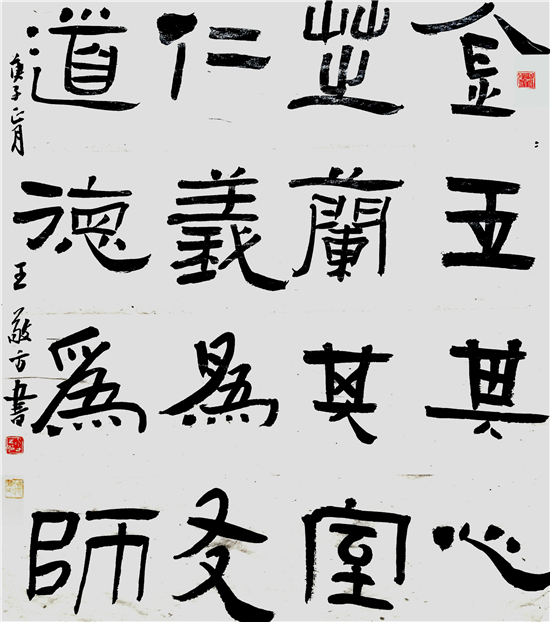 金玉其心
芝蘭其室
仁義爲友
道德爲師
庚子正月 王敬方書